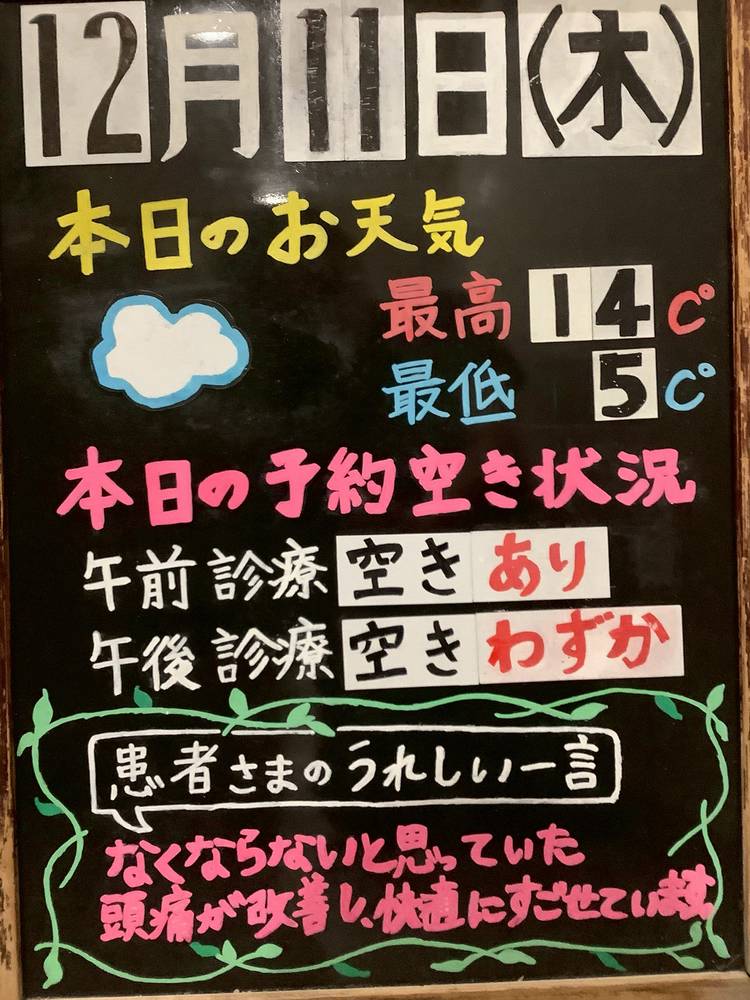 12月11日(木)
本日のお天気
最高 14 C°
最低 5 C°
本日の予約空き状況
午前診療 空き あり
午後診療 空き わずか
患者さまのうれしい一言
なくならないと思っていた
頭痛が改善し、快適にすごせています